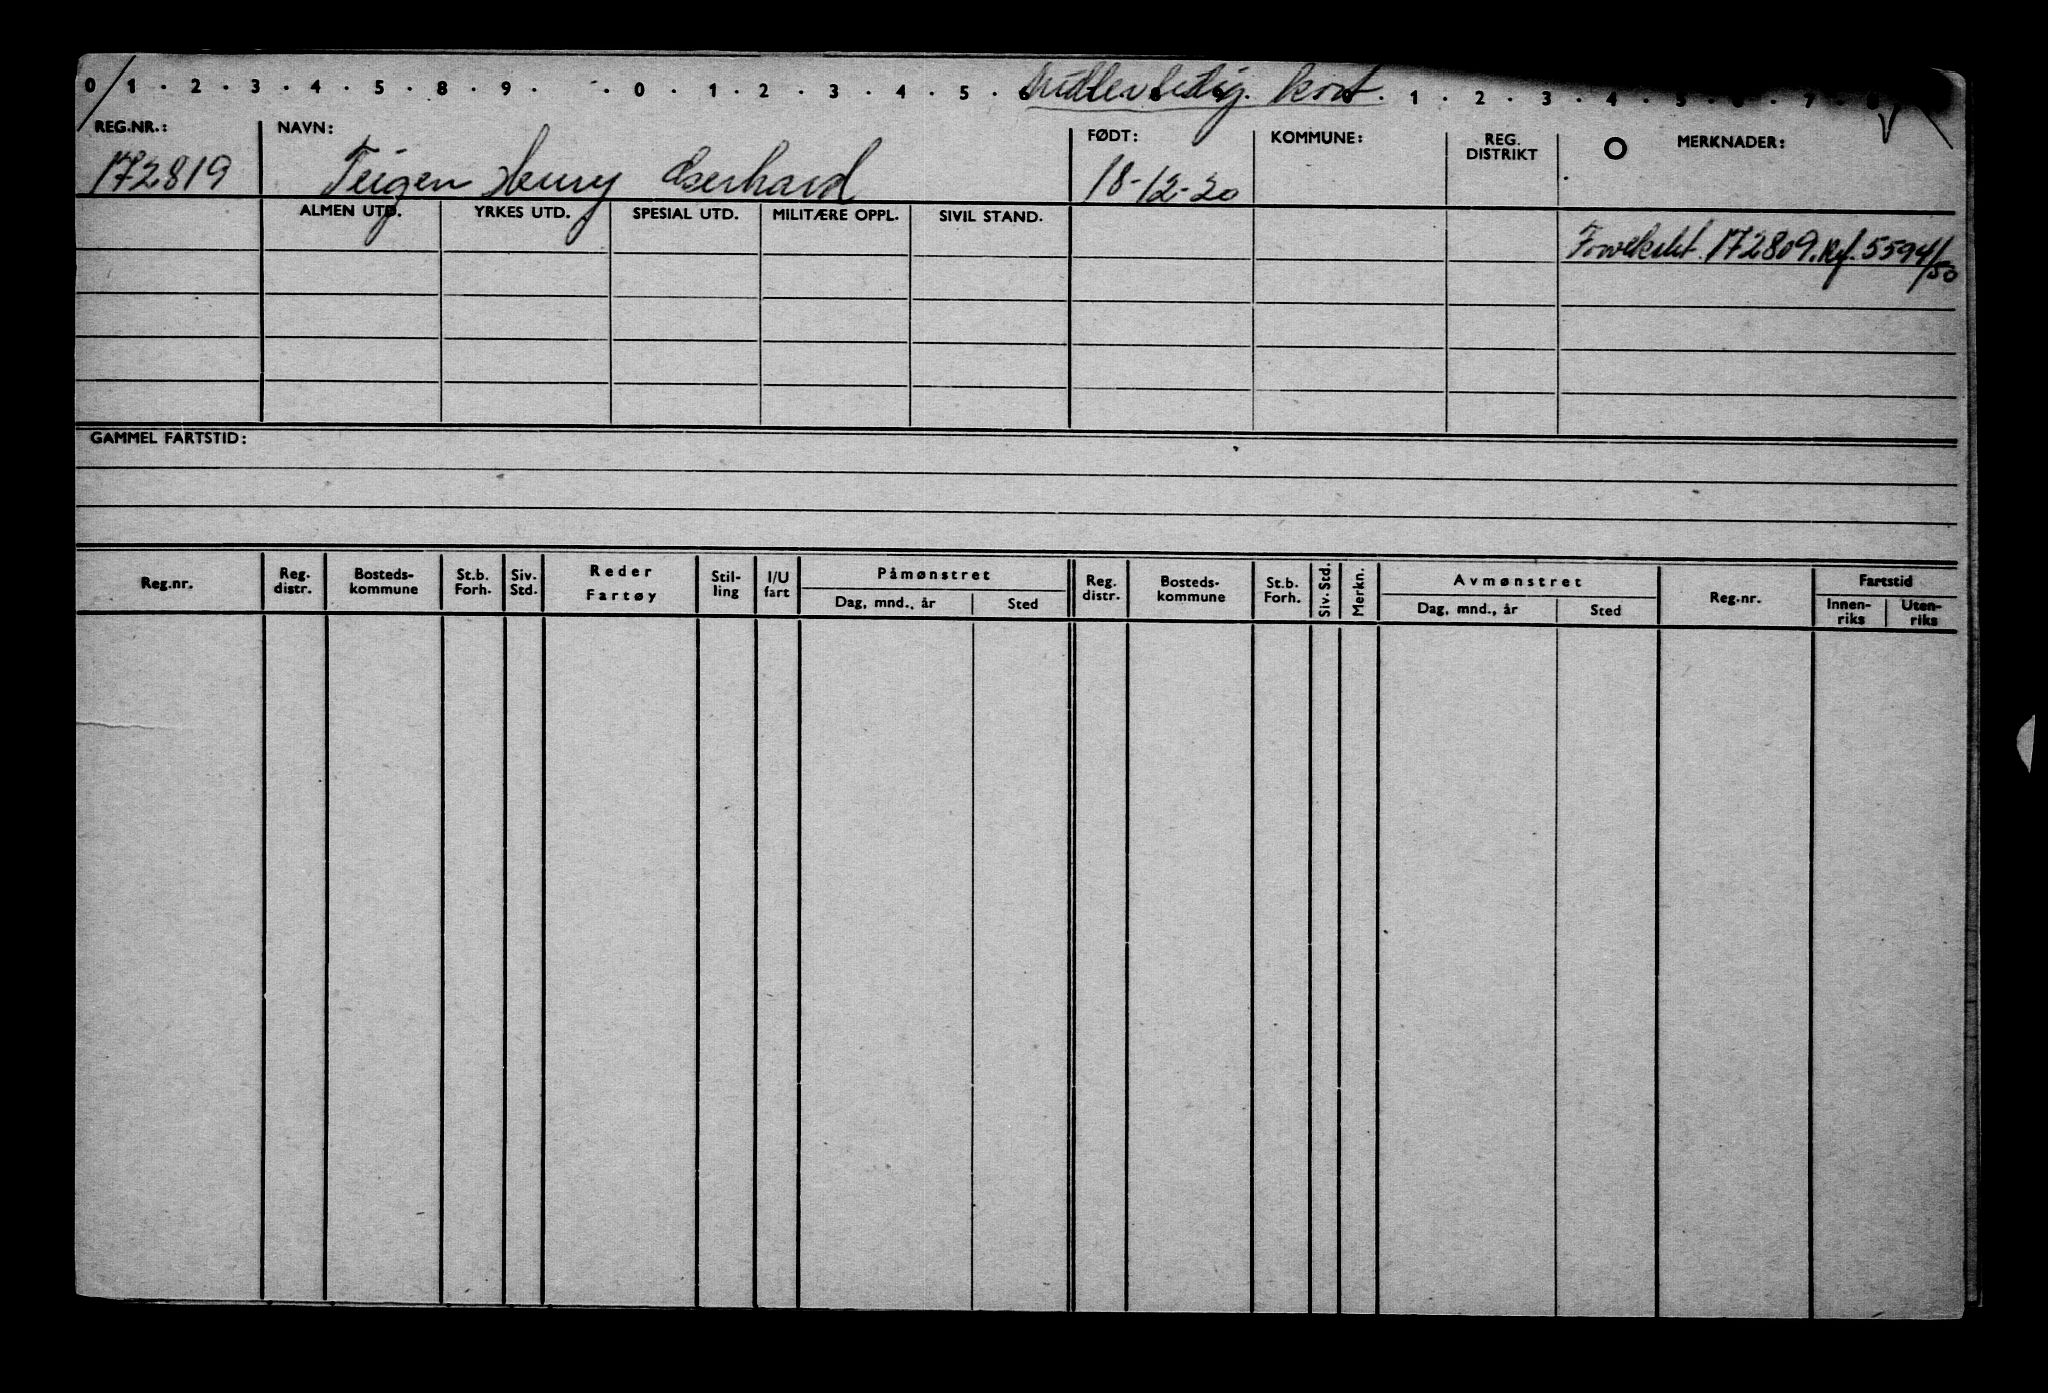 0 1 . 2 . 3 . 4 . 5 . 8 . 9 . . 0 . 1 . 2 . 3 . 4 . 5 . Midlertidig kort. 1 . 2 . 3 . 4 . 5 . 6 . 7 . 8
REG.NR.: NAVN: FØDT: KOMMUNE: REG. DISTRIKT O MERKNADER:
172819 Teigen Henry 18-12-20
ALMEN UTD. YRKES UTD. SPESIAL UTD. MILITÆRE OPPL. SIVIL STAND.
Forvekslet. 172809. Ref. 5594/50
GAMMEL FARTSTID:
Reg.nr. Reg. distr. Bosteds-kommune St.b. Forh. Siv. Std. Reder Fartøy Stil-ling I/U fart Påmønstret Dag, mnd., år Sted Reg. distr. Bosteds-kommune St.b. Forh. Siv. Std. Merkn. Avmønstret Dag, mnd., år Sted Reg.nr. Fartstid Innen-riks Uten-riks